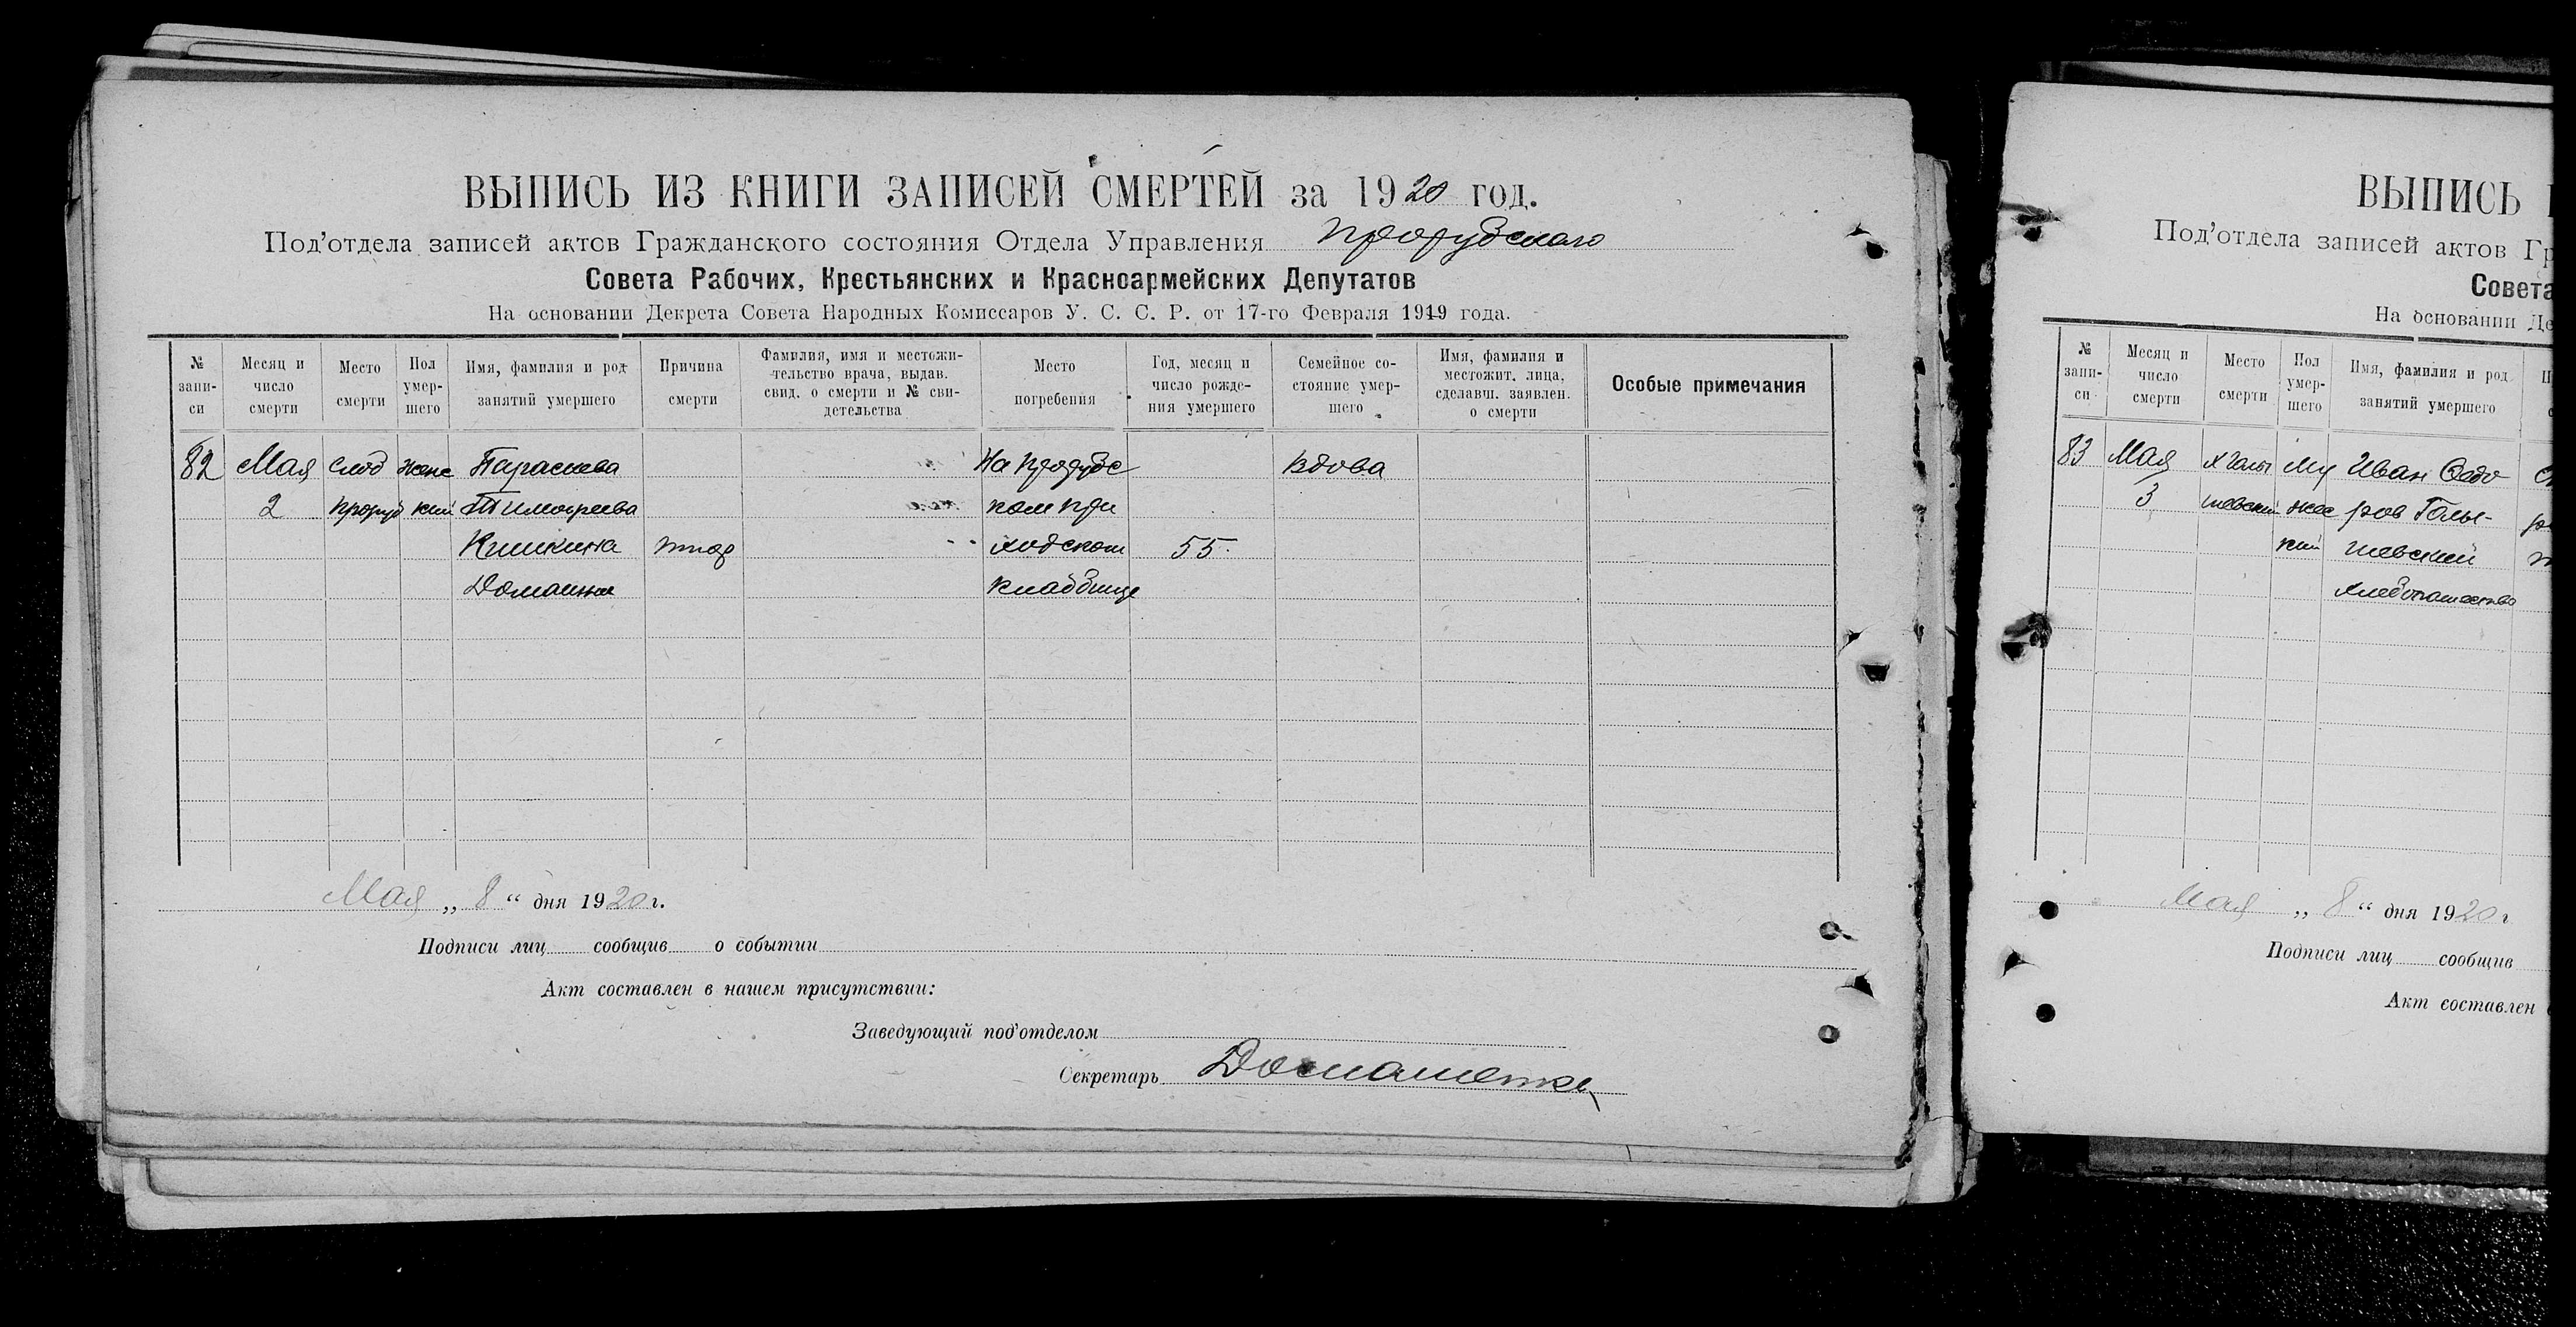 ВЫПИСЬ ИЗ КНИГИ ЗАПИСЕЙ СМЕРТЕЙ за 1920 год.
Под'отдела записей актов Гражданского состояния Отдела Управления Прорубского
Совета Рабочих, Крестьянских и Красноармейских Депутатов
На основании Декрета Совета Народных Комиссаров У. С. С. Р. от 17-го Февраля 1919 года.
№ запи-си
Месяц и число смерти
Место смерти
Пол умер-шего
Имя, фамилия и род занятий умершего
Причина смерти
Фамилия, имя и местожи-тельство врача, выдав. свид. о смерти и № сви-детельства
Место погребения
Год, месяц и число рожде-ния умершего
Семейное со-стояние умер-шего
Имя, фамилия и местожит. лица, сделавш. заявлен. о смерти
Особые примечания
82 Мая Слоб Женс Параскева На Прорубс Вдова
2 Проруб кий Тимофеева ком При
Кишкина ходском 55.
Домашн кладбище
Мая „ 8 “ дня 1920 г.
Подписи лиц сообщив о событии
Акт составлен в нашем присутствии:
Заведующий под'отделом
Секретарь Домашенко
ВЫПИСЬ
Под'отдела записей актов Гр
Совета
На основании Де
№ запи-си
Месяц и число смерти
Место смерти
Пол умер-шего
Имя, фамилия и род занятий умершего
83 Мая Му Иван Федо
3 жес ров Голы-
кий шевский
хлебопашество
Мая „ 8 “ дня 1920 г
Подписи лиц сообщив
Акт составлен